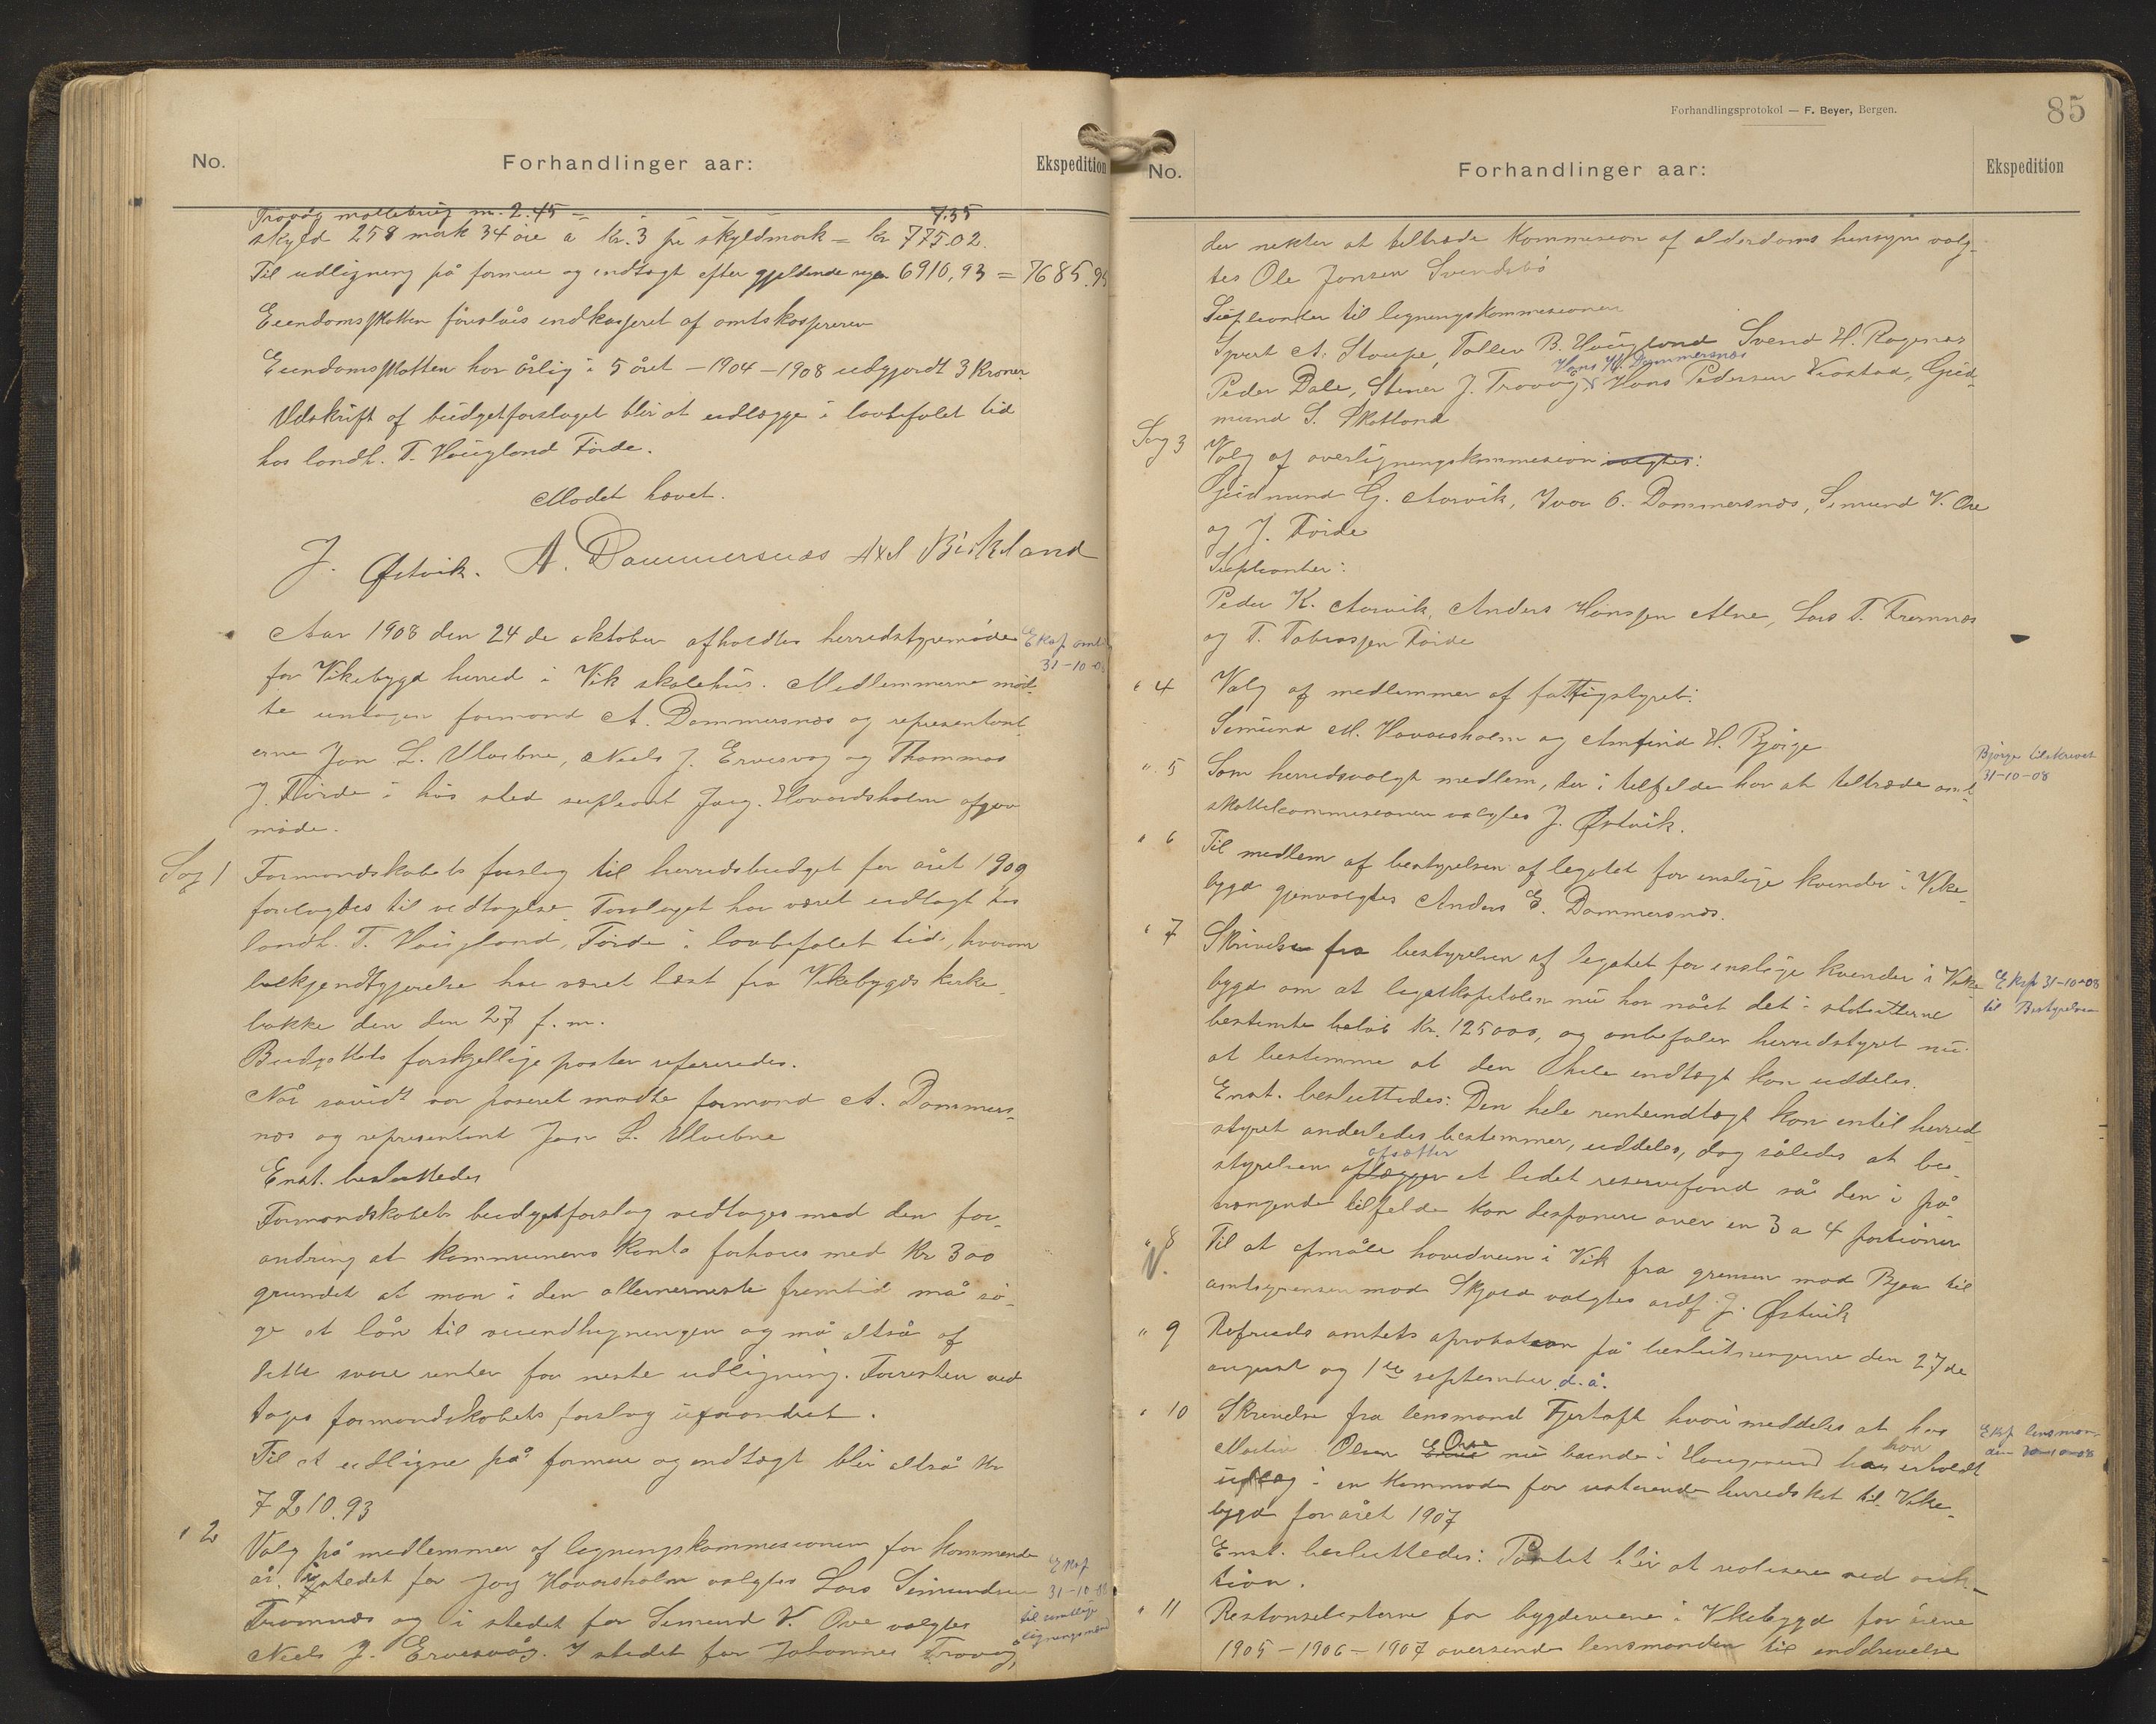 No.
Forhandlinger aar:
Ekspedition
Trovåg møllebrug m. 2.45 — 7.35
skyld 258 mark 34 øre a kr. 3 pr skyldmark = kr 775.02.
Til udligning på formue og indtægt efter gjeldende regn. 6910,93 = 7685.95
Eiendomsskatten foreslåes indkasseret af amtskassereren
Eiendomsskatten har årlig i 5 året – 1904 – 1908 udgjordt 3 Kroner
Udskrift af budgetforslaget blir at udlægge i lovbefalet tid
hos landh. T. Haugland Førde.
Mødet hævet.
J. Østvik. A. Dommersnæs Axl Birkland
Aar 1908 den 24 de oktober afholdtes herredstyremøde
for Vikebygd herred i Vik skolehus. Medlemmerne mød-
te undtagen formand A. Dommersnæs og representant-
erne Jon L. Ulvebne, Neels J. Ervesvåg og Thommas
J. Førde i his sted supleant Jørg. Hovardsholm afgav
møde.
Eksp amtet
31-10-08
Sag 1
Formandskabets forslag til herredsbudget for året 1909
forelagdes til vedtagelse. Forslaget har været udlagt hos
landh. T. Haugland, Førde i lovbefalet tid, hvorom
bekjendtgjørelse har været læst fra Vikebygds kirke-
bakke den den 27 f.m.
Budgettets forskjellige poster refereredes.
Når såvidt var paseret mødte formand A. Dommers-
næs og representant Jon L. Ulvebne
Enst. besluttedes
Formandskabets budgetforslag vedtages med den for-
andring at kommunens konto forhøies med kr 300
grundet at man i den allernermeste fremtid må sø-
ge et lån til veiindhegningen og må altså af
dette svare renter for neste udligning. Forresten ved
tages formandskabets forslag uforandret.
Til at udligne på formue og indtægt blir altså kr
7210.93
" 2
Valg på medlemmer af ligningskommesionen for kommende
år. Istedet for Jørg Hovarsholm valgtes Lars Simundsen
Framnæs og i stedet for Simund V. Ove valgtes
Neels J. Ervesvåg. I stedet for Johannes Trovåg,
Eksp
31-10-08
til samtlige
ligningsmænd
Forhandlingsprotokol — F. Beyer, Bergen.
85
No.
Forhandlinger aar:
Ekspedition
der nekter at tiltræde kommesion af alderdoms hensyn valg-
tes Ole Jonsen Svendsbø
Supleanter til ligningskommesionen
Sjurt A. Stoupe, Tollev B. Haugland Svend H. Ragenæs
Hans H. Dommersnæs
Peder Dale, Stener J. Trovåg, Hans Pedersen Viestad, Gud-
mund S. Skatland
Sag 3
Valg af overligningskommesion valgtes:
Gudmund G. Aarvik, Ivar O. Dommersnæs, Simund V. Ove
og J. Førde
Supleanter:
Peder K. Aarvik, Anders Hanssen Alne, Lars T. Framnæs
og T. Tobiassen Førde
" 4
Valg af medlemmer af fattigstyret:
Simund M. Hovarsholm og Amfind H. Bjørge
Bjørge tilskrevet
31-10-08
" 5
Som herredsvalgt medlem, der i tilfelde har at tiltræde amt
skattekommesionen valgtes J. Østvik.
" 6
Til medlem af bestyrelsen af legatet for enslige kvinder i Vike-
bygd gjenvalgtes Anders E. Dommersnæs.
" 7
Skrivelse fra bestyrelsen af legatet for enslige kvinder i Vike-
bygd om at legatkapitalen nu har nået det i statutterne
bestemte beløb kr. 125000, og anbefaler herredstyret nu
at bestemme at den hele indtægt kan uddeles.
Enst. besluttedes: Den hele renteindtægt kan indtil herred-
styret anderledes bestemmer, uddeles, dog således at be-
afsætter
styrelsen aflægger et lidet reservefond så den i på-
trængende tilfelde kan desponere over en 3 a 4 portioner
Eksp 31-10-08
til Bestyrelsen
" 8
V.
Til at opmåle hovedveien i Vik fra grensen mod Bjoa til
amtsgrensen mod Skjold valgtes ordf. J. Østvik
" 9
Refereeds amtets aprobation på beslutningerne den 27de
august og 1ste september d.å.
" 10
Skrivelse fra lensmand Fjertoft hvori meddeles at hos
Martin Olsen Ove nu boende i Haugesund har han erholdt
udlæg i en kommode for resterende herredskat til Vike-
bygd for året 1907
Enst. besluttedes: Pantet blir at realisere ved auk-
tion.
Eksp lensman-
den 31-10-08
" 11
Restanselisterne for bygdeveiene i Vikebygd for årene
1905 – 1906 – 1907 oversendes lensmanden til inddrivelse